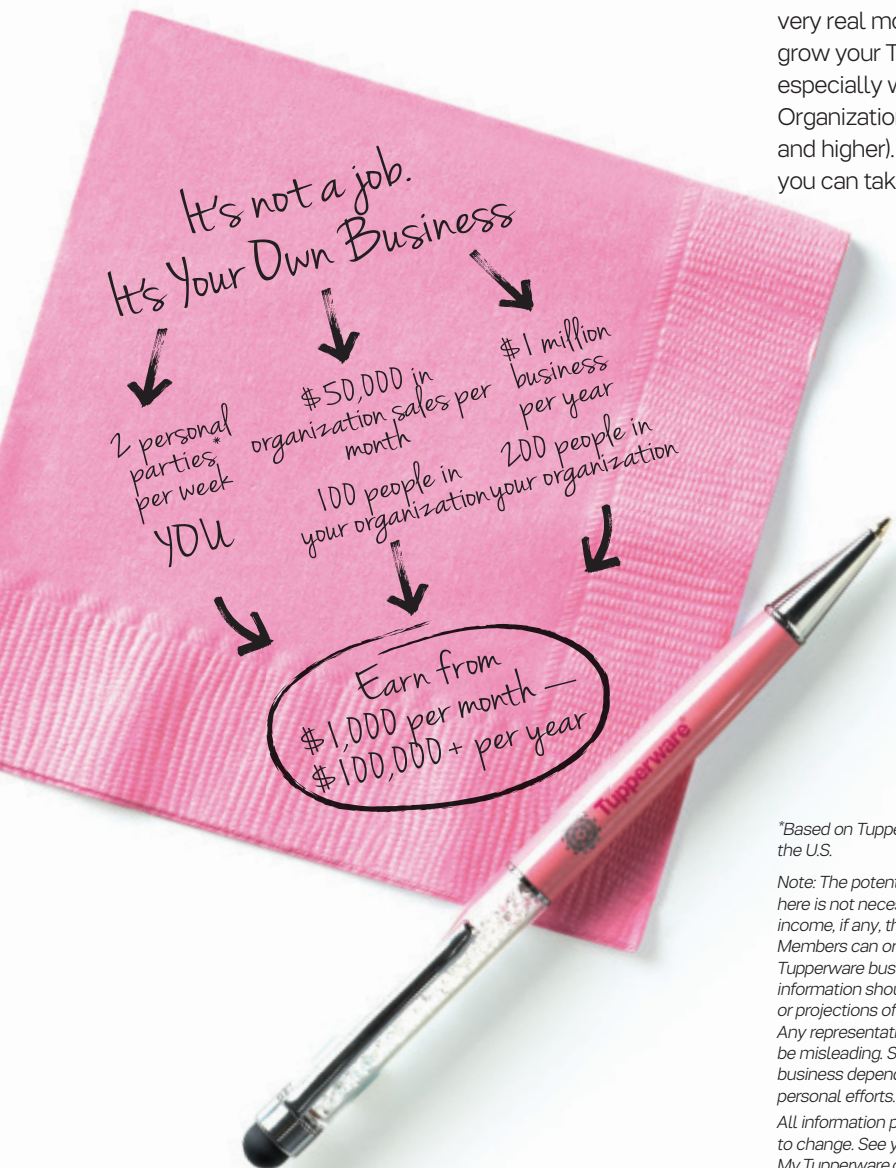 very real mo
grow your T
especially w
Organizatio
and higher).
you can tak
It's not a job.
It's Your Own Business
2 personal
parties*
per week
YOU
$50,000 in
organization sales per
month
100 people in
your organization
$1 million
business
per year
200 people in
your organization
Earn from
$1,000 per month —
$100,000+ per year
Tupperware®
*Based on Tuppe
the U.S.
Note: The potent
here is not neces
income, if any, th
Members can or
Tupperware bus
information shou
or projections of
Any representati
be misleading. S
business depend
personal efforts.
All information p
to change. See y
My Tupperware